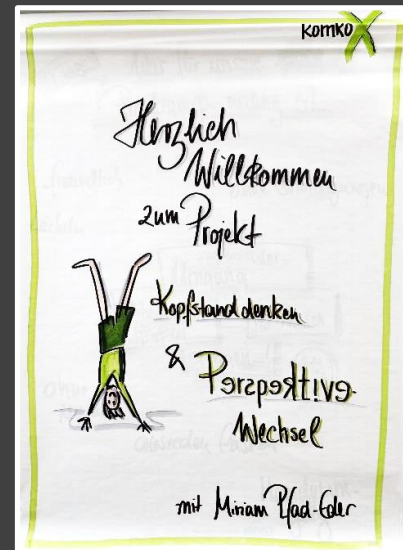 KomKo X
Herzlich
Willkommen
zum Projekt
Kopfstanddenken
& Perspektive-
Wechsel
mit Miriam Pfad-Eder